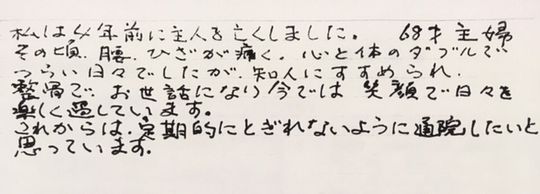 私は4年前に主人を亡くしました。 68才主婦
その頃、腰、ひざが痛く、心と体のダブルで
つらい日々でしたが、知人にすすめられ、
整骨で、お世話になり今では 笑顔で日々を
楽しく過しています。
これからは、定期的にとぎれないように通院したいと
思っています。